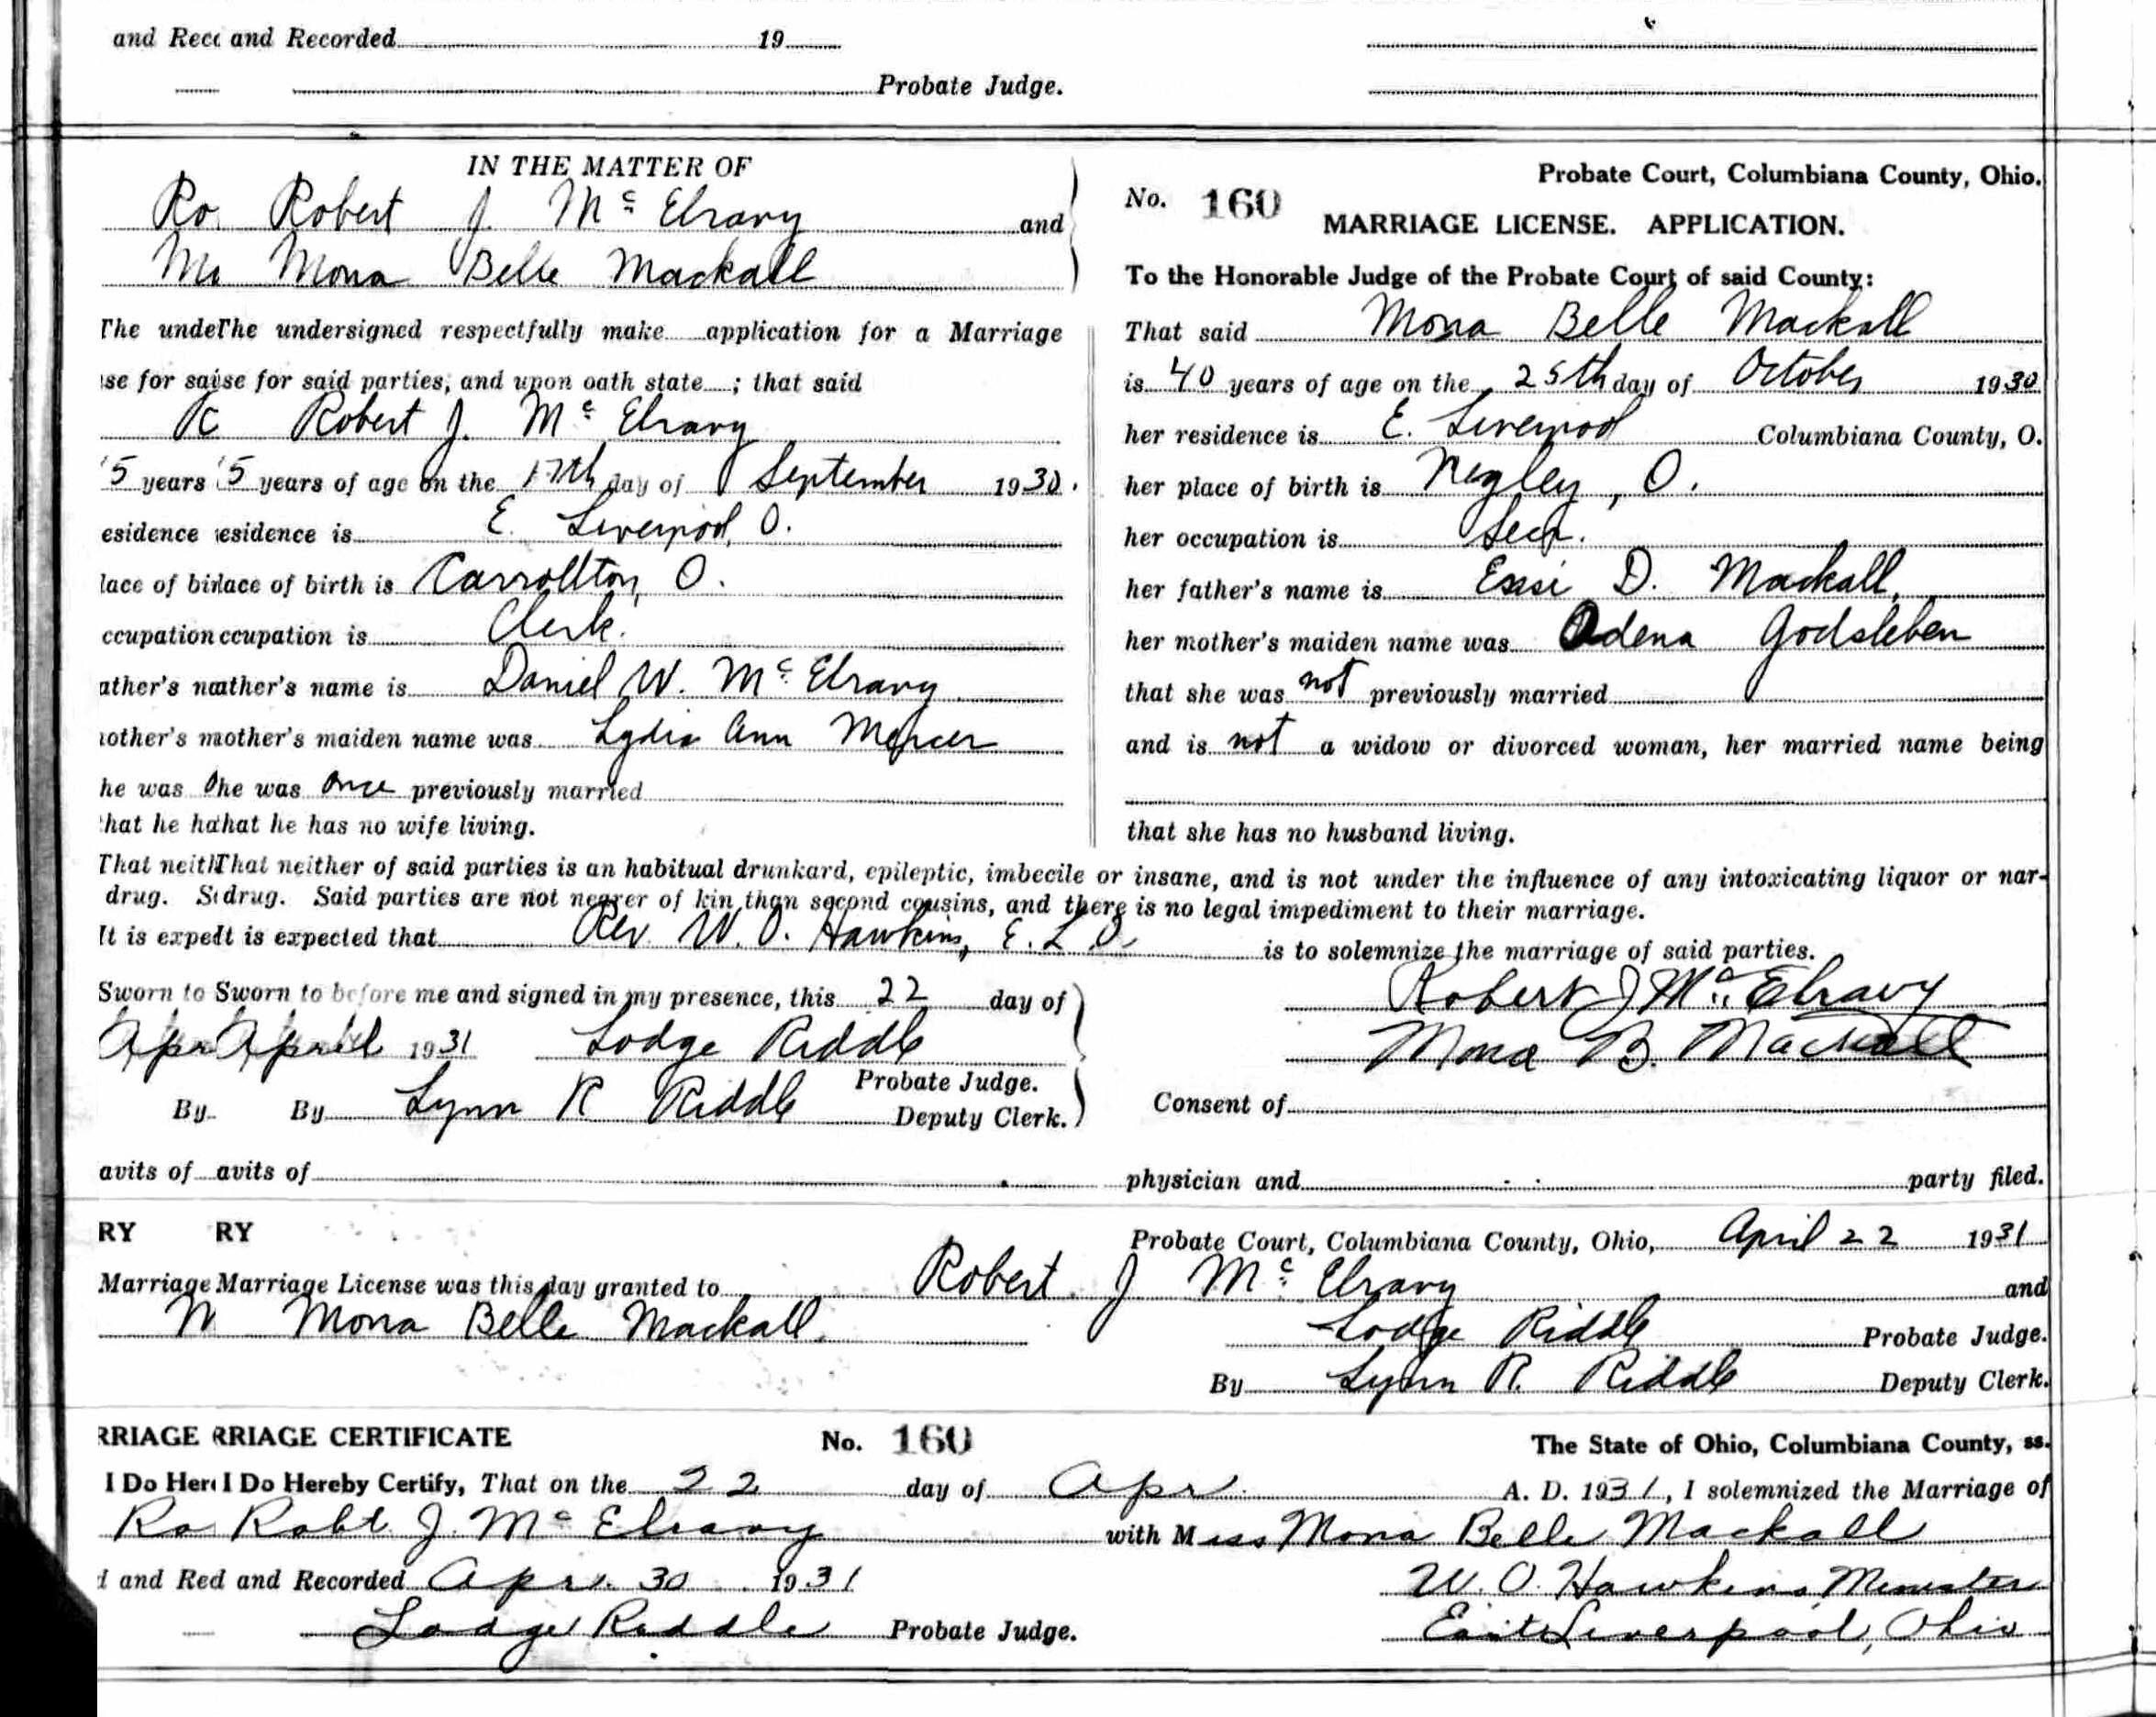 and Rec and Recorded 19
Probate Judge.
IN THE MATTER OF
Ro Robert J. Mc Elravy and
Mo Mona Belle Mackall
The unde The undersigned respectfully make application for a Marriage
se for sai se for said parties, and upon oath state ; that said
R Robert J. Mc Elravy
5 years 5 years of age on the 17th day of September 1930.
esidence esidence is E. Liverpool, O.
lace of bir lace of birth is Carrollton, O.
ccupation ccupation is Clerk.
ather's n ather's name is Daniel W. Mc Elravy
other's m other's maiden name was Lydia Ann Mercer
he was O he was Once previously married
hat he ha hat he has no wife living.
Probate Court, Columbiana County, Ohio.
No. 160
MARRIAGE LICENSE. APPLICATION.
To the Honorable Judge of the Probate Court of said County:
That said Mona Belle Mackall
is 40 years of age on the 25th day of October 1930
her residence is E. Liverpool Columbiana County, O.
her place of birth is Negley, O.
her occupation is Secy.
her father's name is D. Mackall,
her mother's maiden name was Adena Godsleben
that she was not previously married
and is not a widow or divorced woman, her married name being
that she has no husband living.
That neith That neither of said parties is an habitual drunkard, epileptic, imbecile or insane, and is not under the influence of any intoxicating liquor or nar-
drug. S drug. Said parties are not nearer of kin than second cousins, and there is no legal impediment to their marriage.
It is expe It is expected that Rev. W. O. Hawkins, E. L. O. is to solemnize the marriage of said parties.
Sworn to Sworn to before me and signed in my presence, this 22 day of
Apr April 1931 Lodge Riddle
Probate Judge.
By By Lynn R Riddle Deputy Clerk.
Robert J Mc Elravy
Mona B. Mackall
Consent of
avits of avits of physician and party filed.
RY RY Probate Court, Columbiana County, Ohio, April 22 1931
Marriage Marriage License was this day granted to Robert J Mc Elravy and
M Mona Belle Mackall. Lodge Riddle Probate Judge.
By Lynn R. Riddle Deputy Clerk.
RRIAGE RRIAGE CERTIFICATE No. 160 The State of Ohio, Columbiana County, ss.
I Do Her I Do Hereby Certify, That on the 22 day of Apr. A. D. 1931, I solemnized the Marriage of
Ro Robt. J. Mc Elravy with Miss Mona Belle Mackall
d and Re d and Recorded Apr. 30 1931 W. O. Hawkins Minister
Lodge Riddle Probate Judge. East Liverpool, Ohio